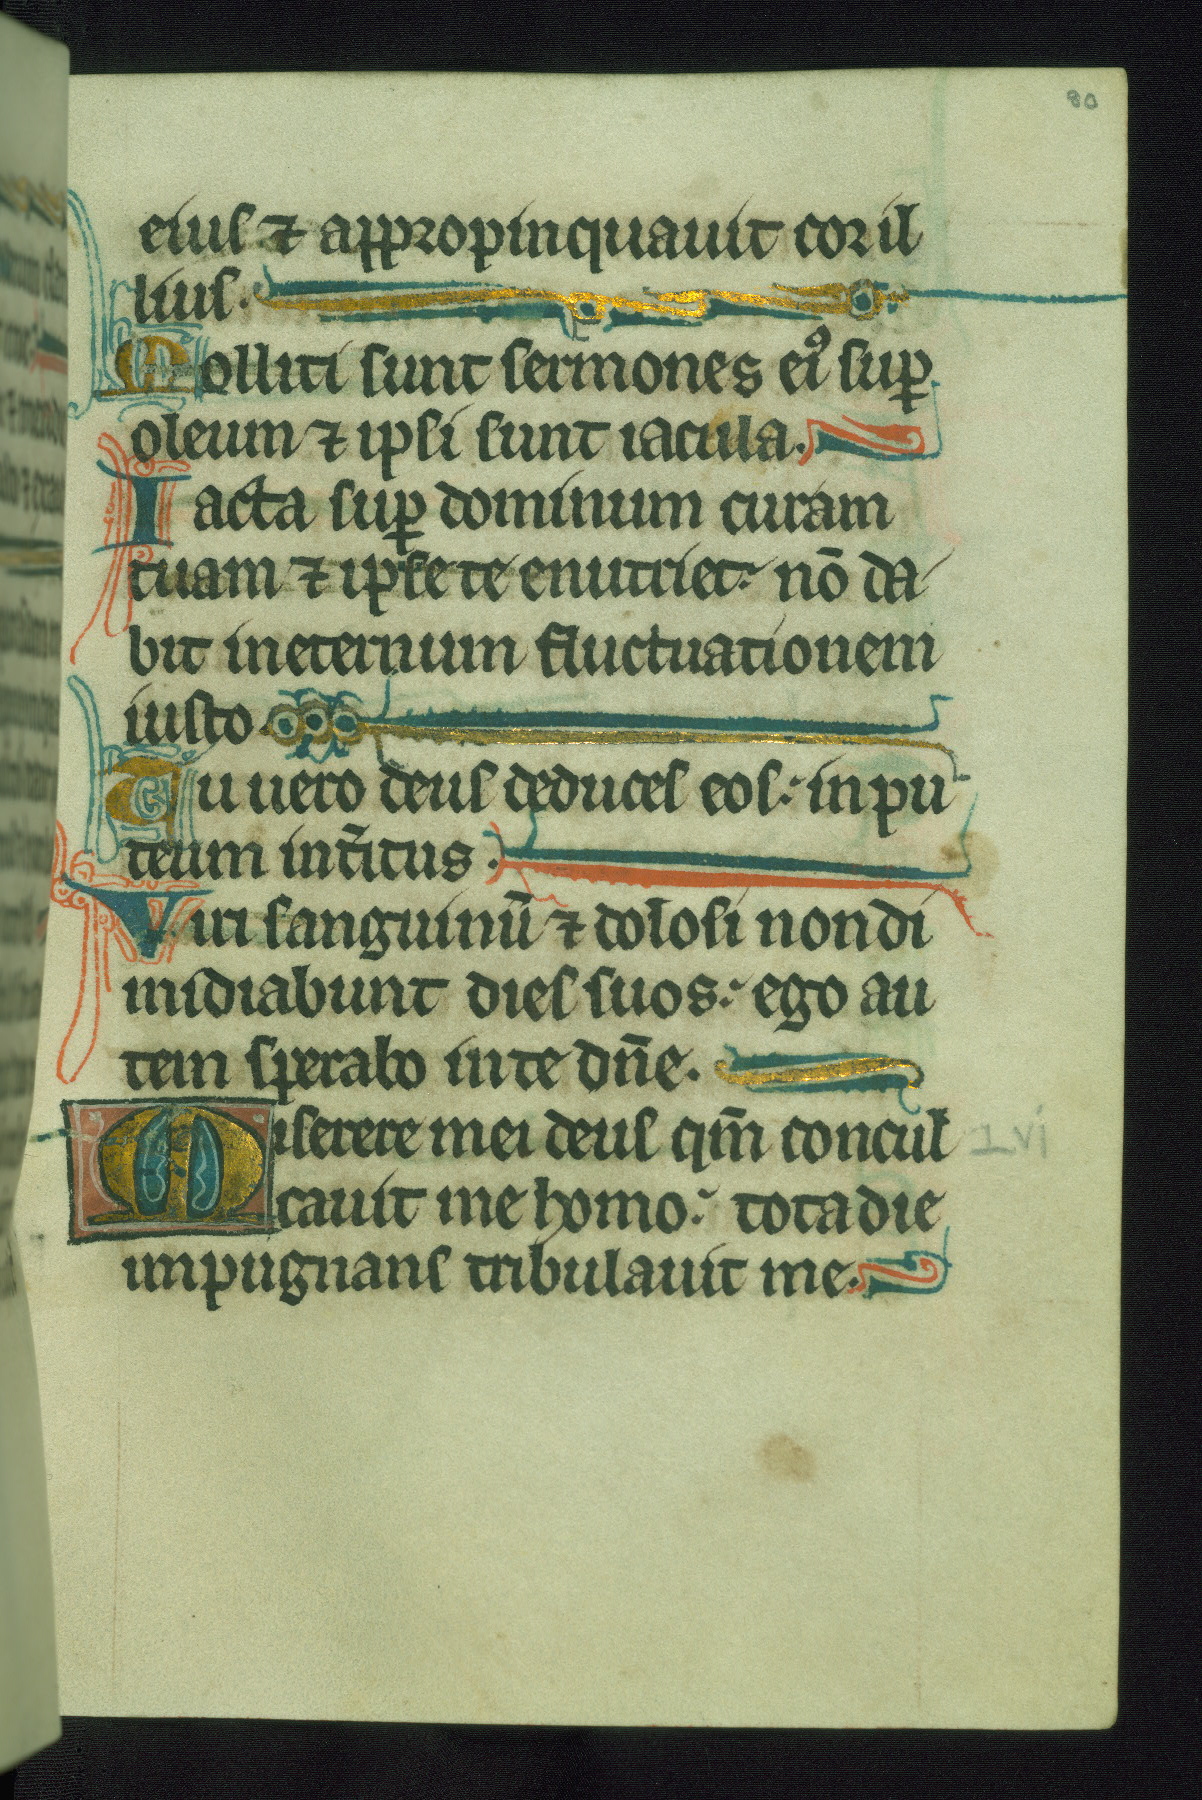 80
eius ⁊ appropinquauit cor il
lius.
Molliti sunt sermones eiꝰ suꝑ
oleum ⁊ ipsi sunt iacula.
Iacta suꝑ dominum curam
tuam ⁊ ipse te enutriet: nō da
bit in eternum fluctuationem
iusto.
Tu uero deus deduces eos: in pu
teum int̄itus.
Viri sanguinū ⁊ dolosi non di
midiabunt dies suos: ego au
tem sperabo in te dn̄e.
Miserere mei deus qm̄ concul
LVI
cauit me homo: tota die
impugnans tribulauit me.